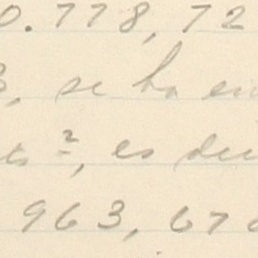 0.778,72
3, se ha en
ts², es deci
963,670